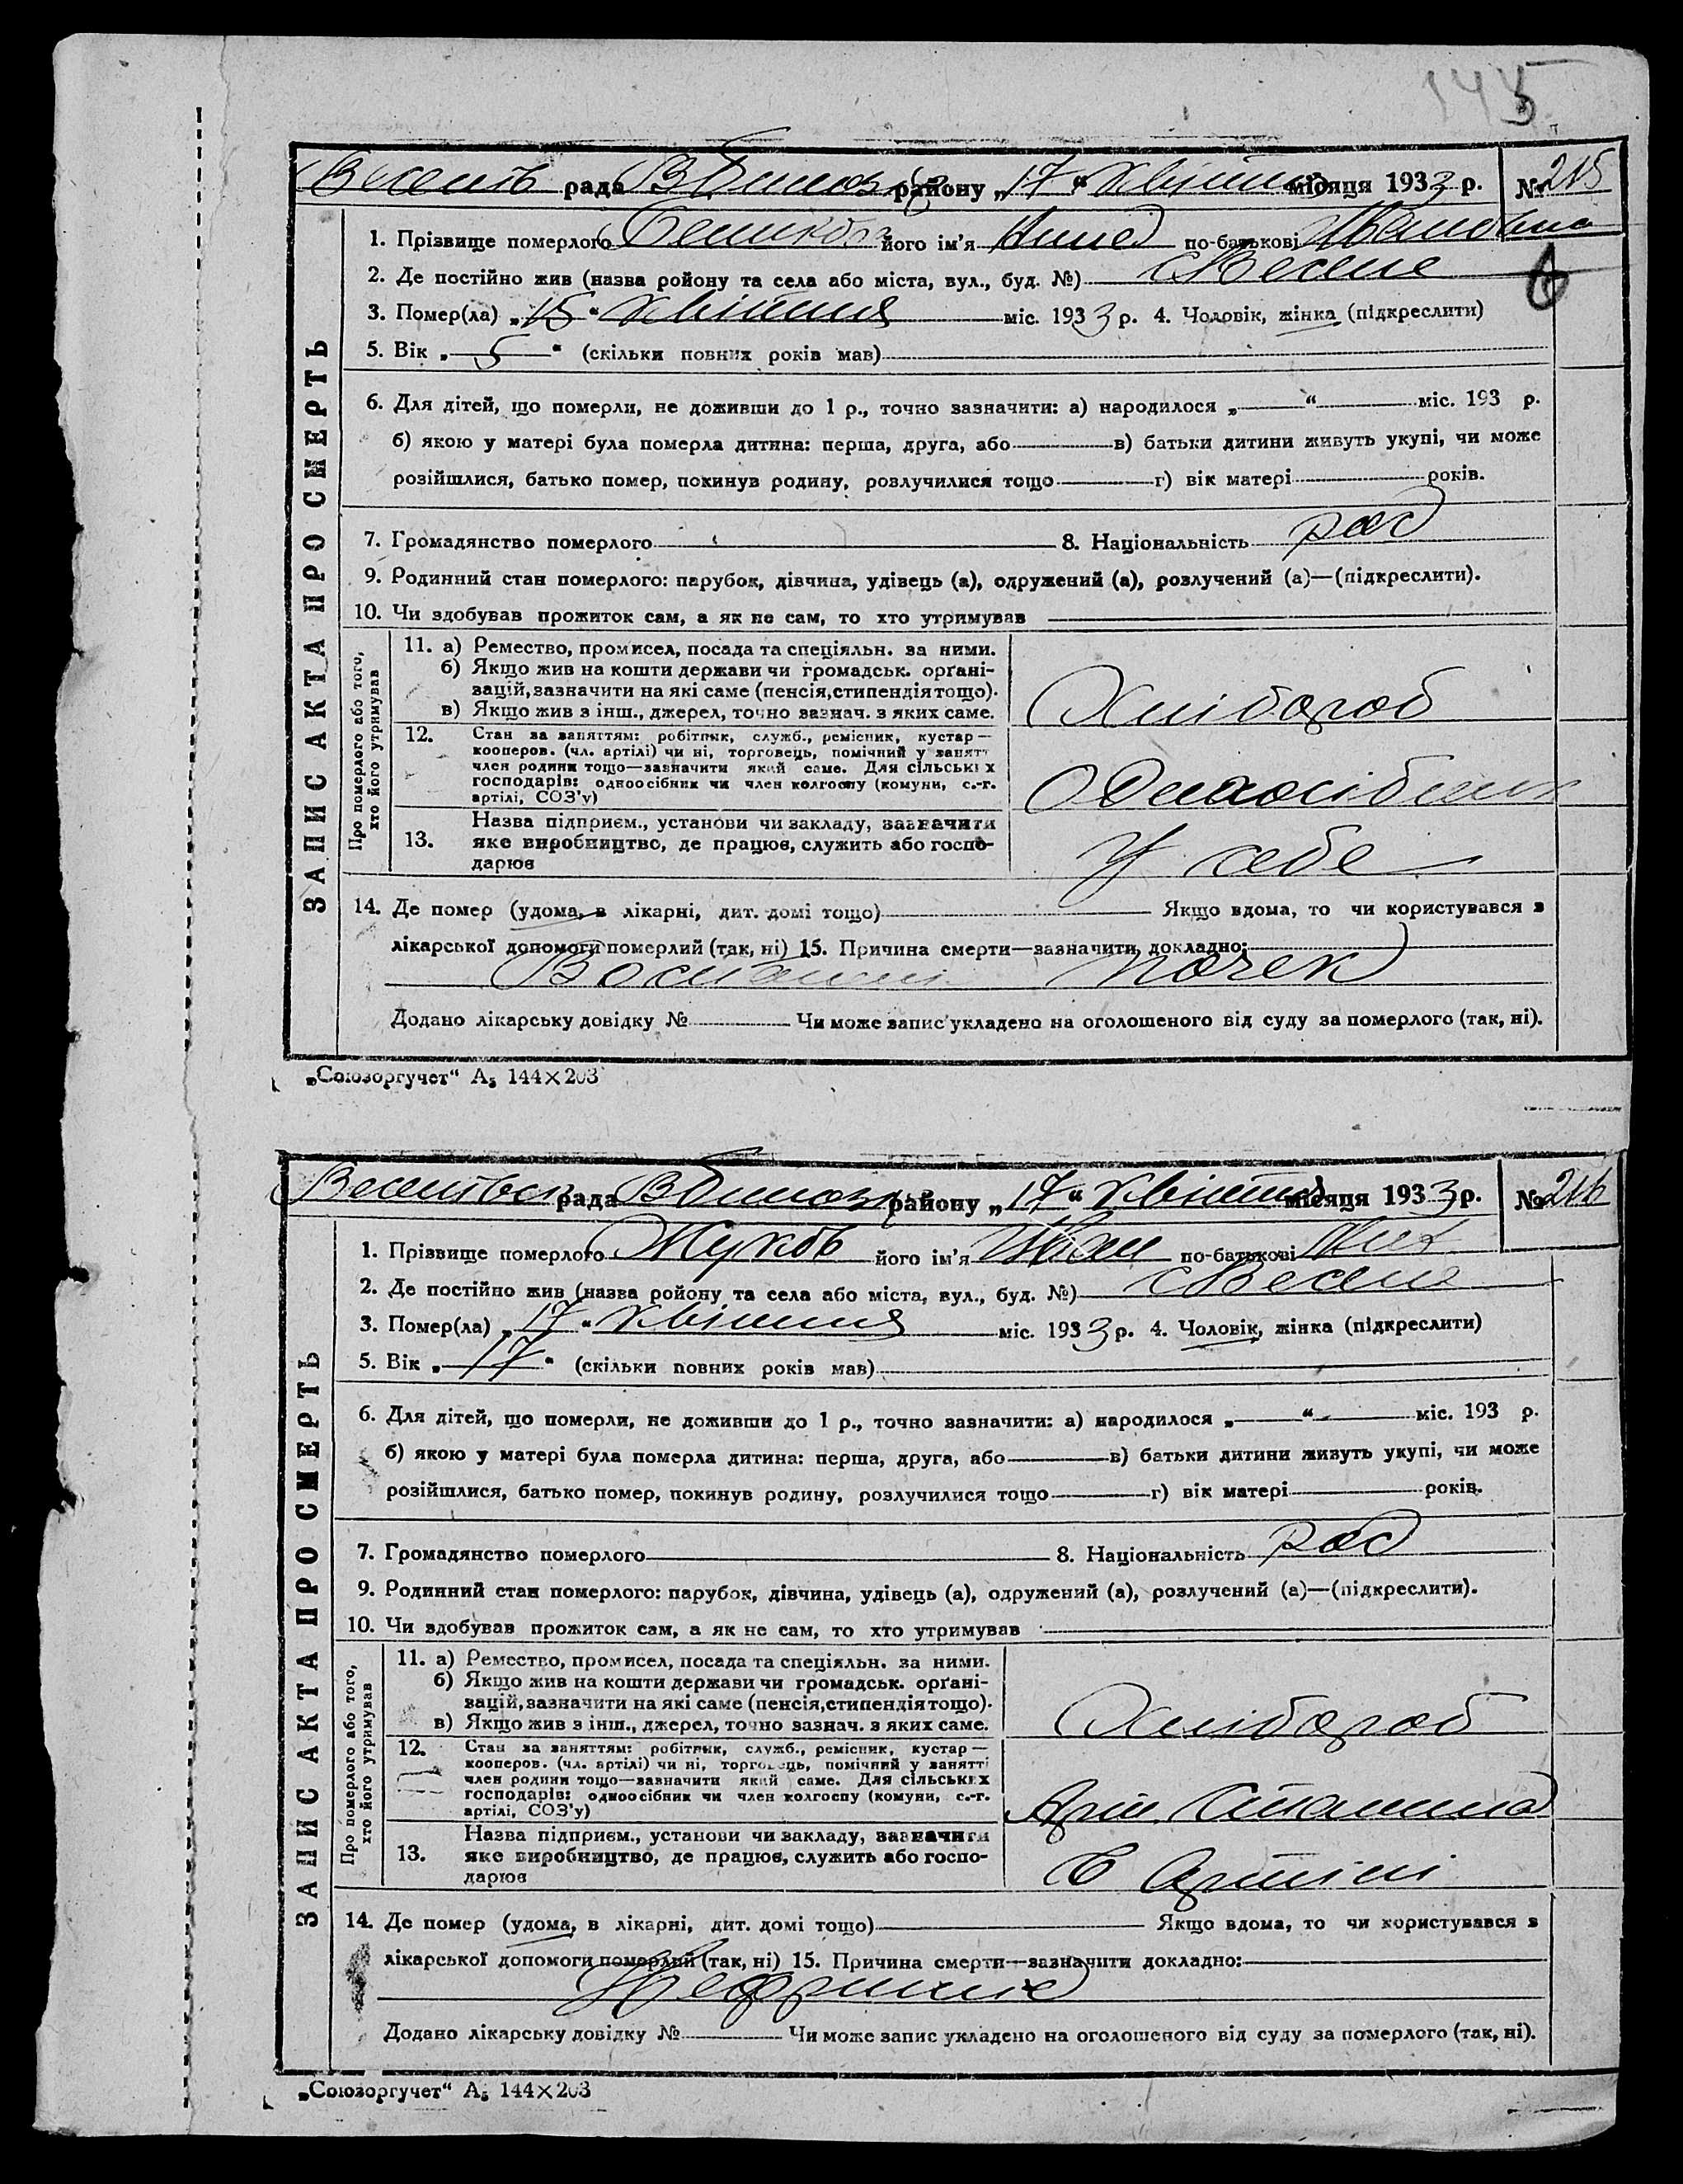 145
рада району „17“ квітня місяця 1933 р. № 215
1. Прізвище померлого його ім'я Анна по-батькові Ивановна
2. Де постійно жив (назва ройону та села або міста, вул., буд. №) с Веселе
3. Помер(ла) „15“ квітня міс. 1933 р. 4. Чоловік, жінка (підкреслити)
5. Вік „5“ (скільки повних років мав)
6. Для дітей, що померли, не доживши до 1 р., точно зазначити: а) народилося „ “ міс. 193 р.
б) якою у матері була померла дитина: перша, друга, або в) батьки дитини живуть укупі, чи може
розійшлися, батько помер, покинув родину, розлучилися тощо г) вік матері років.
7. Громадянство померлого 8. Національність рос
9. Родинний стан померлого: парубок, дівчина, удівець (а), одружений (а), розлучений (а)—(підкреслити).
10. Чи здобував прожиток сам, а як не сам, то хто утримував
ЗАПИС АКТА ПРО СМЕРТЬ
Про померлого або того,
хто його утримував
11. а) Ремество, промисел, посада та спеціяльн. за ними.
б) Якщо жив на кошти держави чи громадськ. орґані-
зацій, зазначити на які саме (пенсія, стипендія тощо).
в) Якщо жив з інш., джерел, точно зазнач. з яких саме.
Хлібороб
12. Стан за заняттям: робітник, служб., ремісник, кустар—
кооперов. (чл. артілі) чи ні, торговець, помічний у занятт
член родини тощо—зазначити який саме. Для сільських
господарів: одноосібник чи член колгоспу (комуни, с.-г.
артілі, СОЗ'у)
Одноосібник
13. Назва підприєм., установи чи закладу, зазначити
яке виробництво, де працює, служить або госпо-
дарює
У себе
14. Де помер (удома, в лікарні, дит. домі тощо) Якщо вдома, то чи користувався з
лікарської допомоги померлий (так, ні) 15. Причина смерти—зазначити докладно:
почек
Додано лікарську довідку № Чи може запис укладено на оголошеного від суду за померлого (так, ні).
„Союзоргучет“ А₅ 144×203
рада району „17“ квітня місяця 1933 р. № 216
1. Прізвище померлого Жуков його ім'я Иван по-батькові
2. Де постійно жив (назва ройону та села або міста, вул., буд. №) с Веселе
3. Помер(ла) „17“ квітня міс. 1933 р. 4. Чоловік, жінка (підкреслити)
5. Вік „17“ (скільки повних років мав)
6. Для дітей, що померли, не доживши до 1 р., точно зазначити: а) народилося „ “ міс. 193 р.
б) якою у матері була померла дитина: перша, друга, або в) батьки дитини живуть укупі, чи може
розійшлися, батько помер, покинув родину, розлучилися тощо г) вік матері років.
7. Громадянство померлого 8. Національність рос
9. Родинний стан померлого: парубок, дівчина, удівець (а), одружений (а), розлучений (а)—(підкреслити).
10. Чи здобував прожиток сам, а як не сам, то хто утримував
ЗАПИС АКТА ПРО СМЕРТЬ
Про померлого або того,
хто його утримував
11. а) Ремество, промисел, посада та спеціяльн. за ними.
б) Якщо жив на кошти держави чи громадськ. орґані-
зацій, зазначити на які саме (пенсія, стипендія тощо).
в) Якщо жив з інш., джерел, точно зазнач. з яких саме.
Хлібороб
12. Стан за заняттям: робітник, служб., ремісник, кустар—
кооперов. (чл. артілі) чи ні, торговець, помічний у занятті
член родини тощо—зазначити який саме. Для сільських
господарів: одноосібник чи член колгоспу (комуни, с.-г.
артілі, СОЗ'у)
Арт. Сталина
13. Назва підприєм., установи чи закладу, зазначити
яке виробництво, де працює, служить або госпо-
дарює
В Артілі
14. Де помер (удома, в лікарні, дит. домі тощо) Якщо вдома, то чи користувався з
лікарської допомоги померлий (так, ні) 15. Причина смерти—зазначити докладно:
Додано лікарську довідку № Чи може запис укладено на оголошеного від суду за померлого (так, ні).
„Союзоргучет“ А₅ 144×203